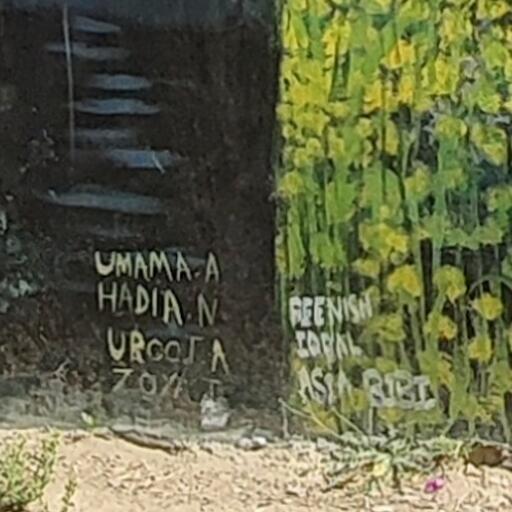 UMAMA.A
HADIA.N
UROOJ A
ZOYA I
BEENISH
IQBAL
ASIA BIBI